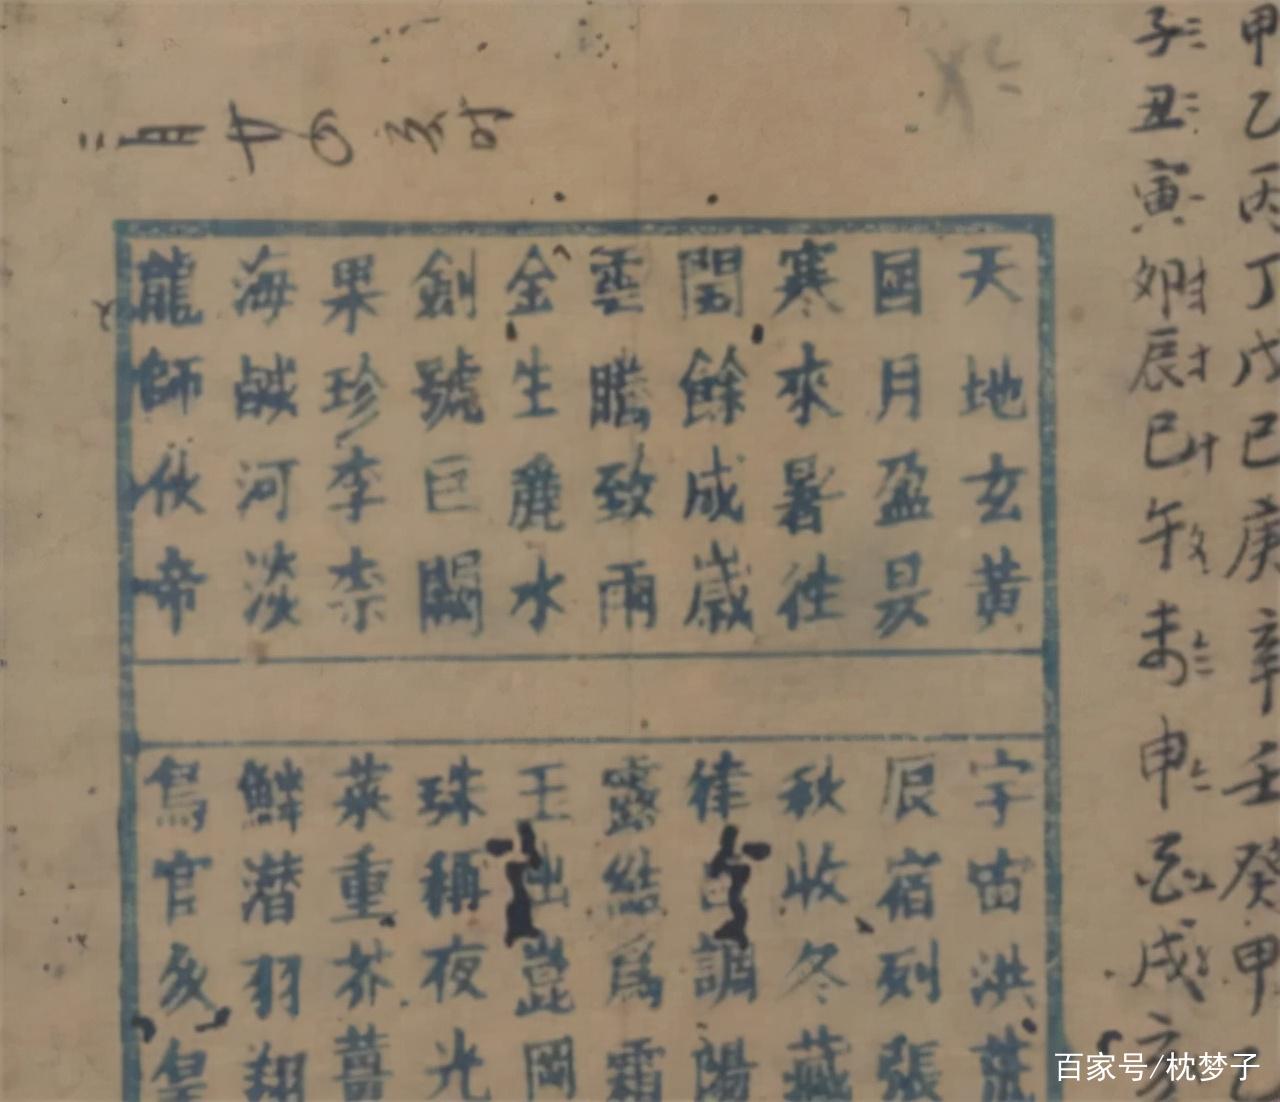 甲乙丙丁戊己庚辛壬癸甲乙
子丑寅卯辰巳午未申酉戌亥
天地玄黃
国月盈昃
寒來暑往
閏餘成歲
雲騰致雨
金生麗水
劍號巨闕
果珍李柰
海鹹河淡
龍師伙帝
宇宙洪荒
辰宿列張
秋收冬藏
律呂調陽
露結爲霜
玉出崑岡
珠稱夜光
菜重芥薑
鱗潛羽翔
鳥官皇
百家号/枕梦子